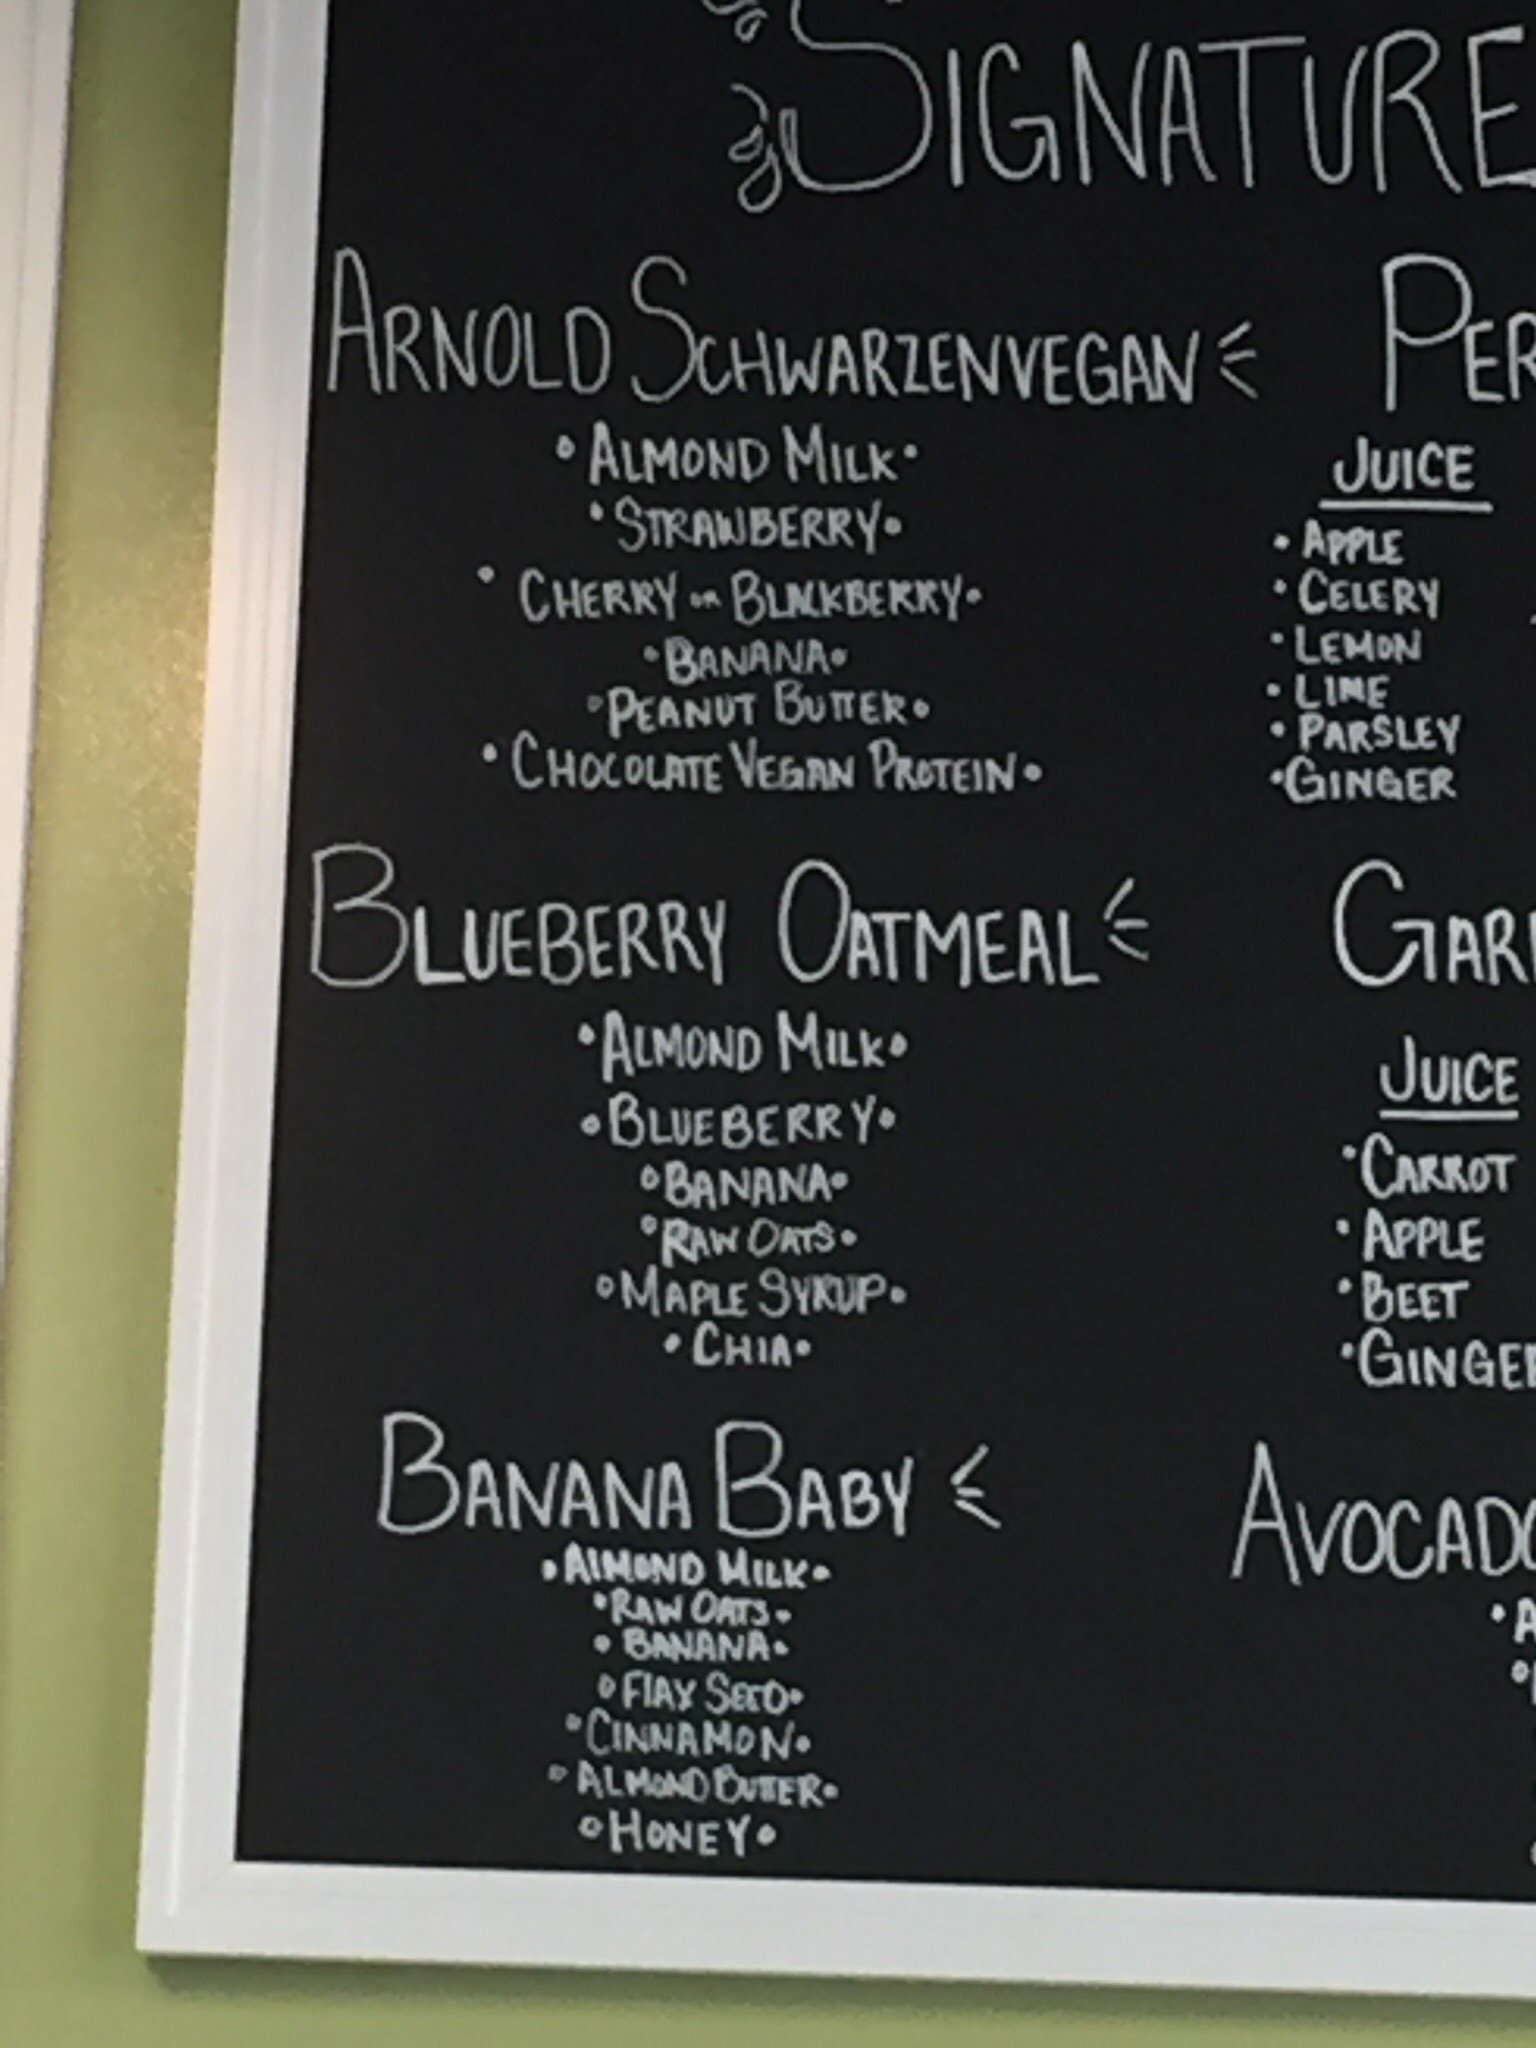 SIGNATURE
ARNOLD SCHWARZENVEGAN
• ALMOND MILK •
• STRAWBERRY •
• CHERRY OR BLACKBERRY •
• BANANA •
• PEANUT BUTTER •
• CHOCOLATE VEGAN PROTEIN •
BLUEBERRY OATMEAL
• ALMOND MILK •
• BLUEBERRY •
• BANANA •
• RAW OATS •
• MAPLE SYRUP •
• CHIA •
BANANA BABY
• ALMOND MILK •
• RAW OATS •
• BANANA •
• FLAX SEED •
• CINNAMON •
• ALMOND BUTTER •
• HONEY •
PER
JUICE
• APPLE
• CELERY
• LEMON
• LIME
• PARSLEY
• GINGER
GAR
JUICE
• CARROT
• APPLE
• BEET
• GINGER
AVOCADO
• A